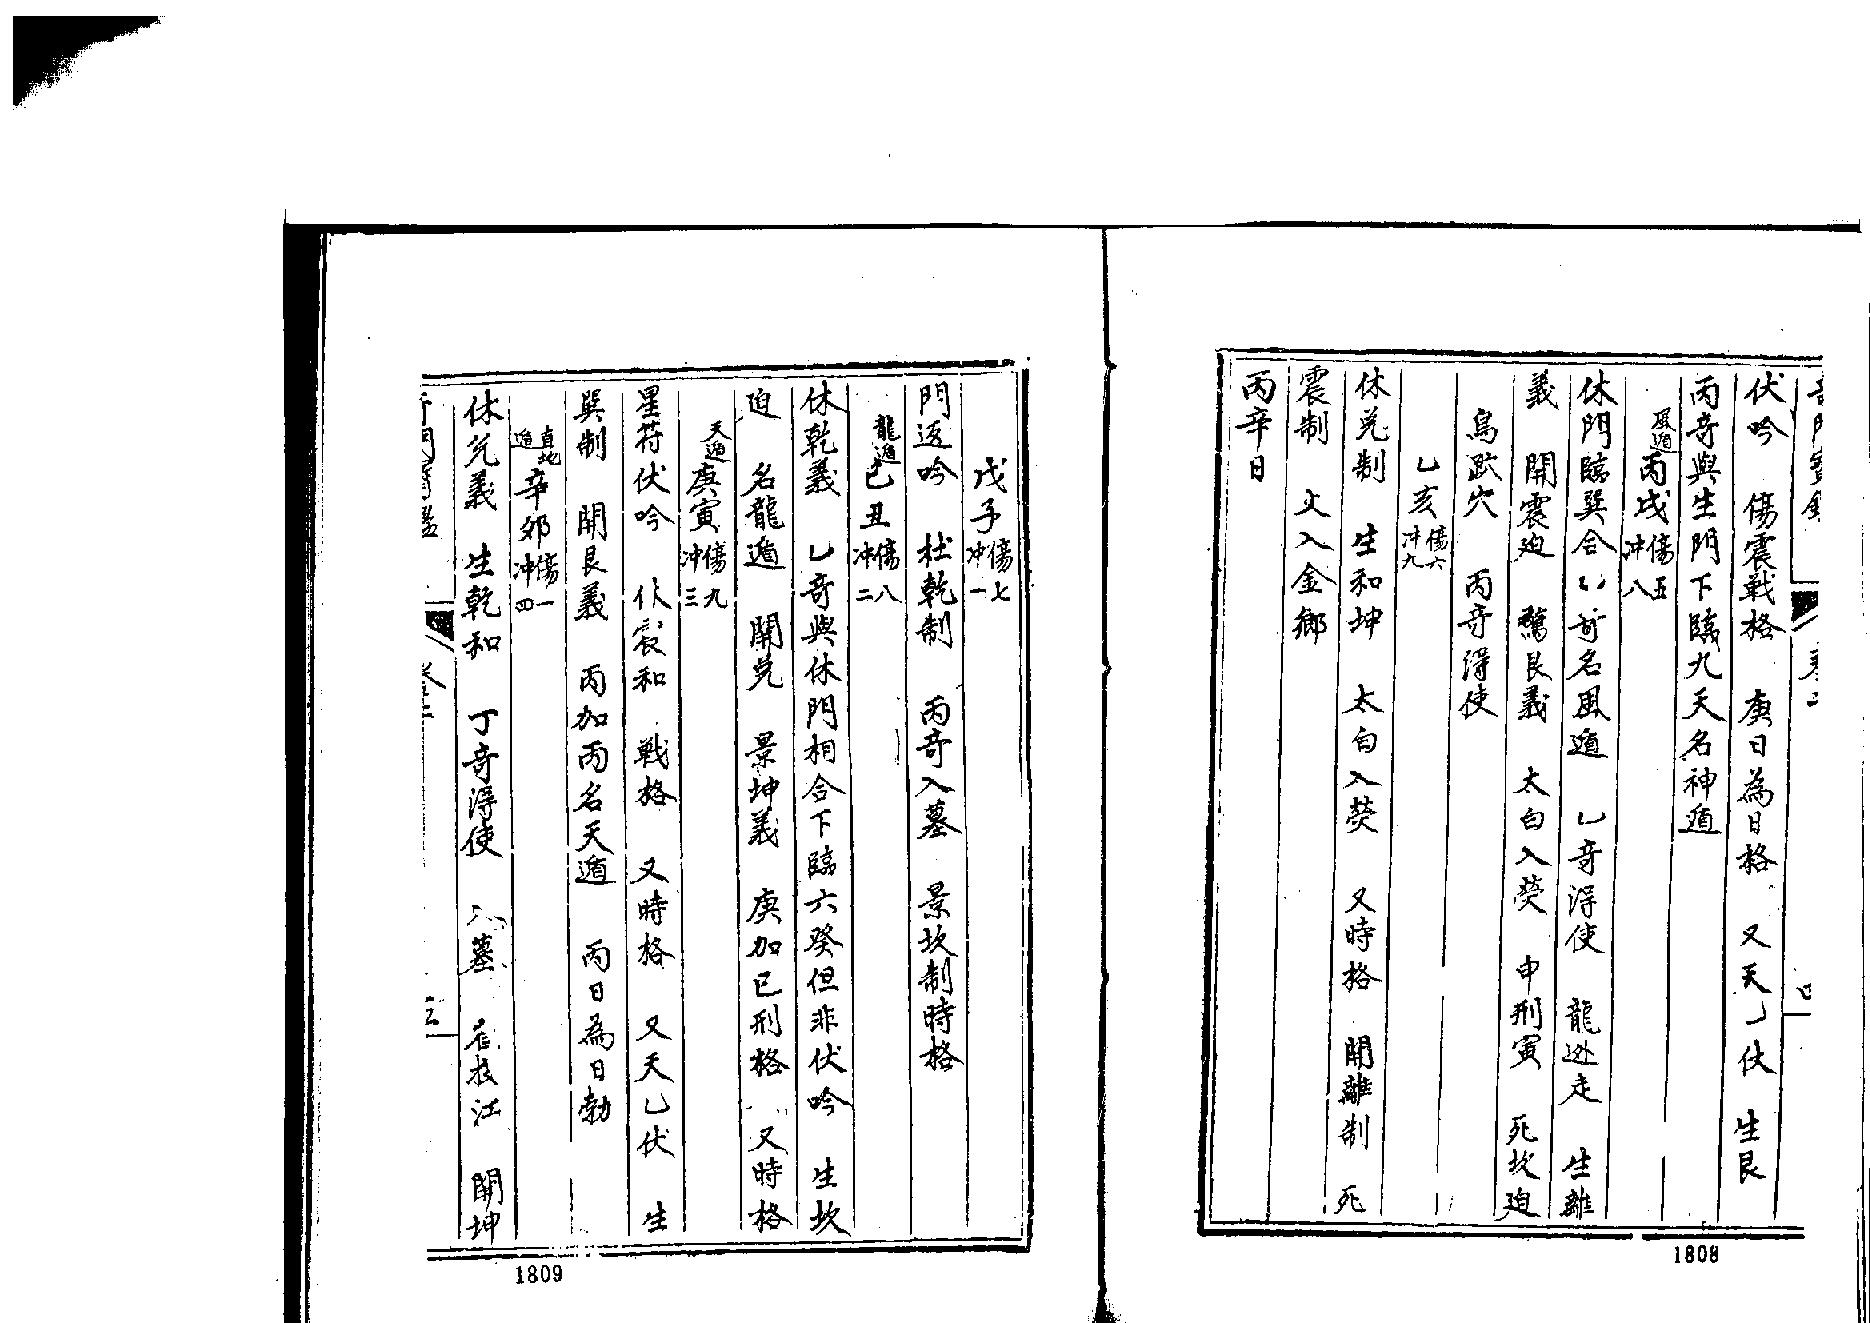 伏吟　傷震戰格　庚日為日格　又天乙伏　生艮
丙奇與生門下臨九天名神遁
風遁丙戌傷五冲八
休門臨巽合乙奇名風遁　乙奇淂使　龍逃走　生離
義　開震廹　驚艮義　太白入熒　申刑寅　死坎廹
鳥跌穴　丙奇淂使
乙亥傷六冲九
休兌制　生和坤　太白入熒　又時格　開離制　死
震制　文入金鄉
丙辛日
1808
戊子傷七冲一
門返吟　杜乾制　丙奇入墓　景坎制時格
龍遁己丑傷八冲二
休乾義　乙奇與休門相合下臨六癸但非伏吟　生坎
廹　名龍遁　開兌　景坤義　庚加已刑格　又時格
天遁庚寅傷九冲三
星符伏吟　休震和　戰格　又時格　又天乙伏　生
巽制　開艮義　丙加丙名天遁　丙日為日勃
辛卯傷一冲四
休兌義　生乾和　丁奇淂使　入墓　投江　開坤
1809